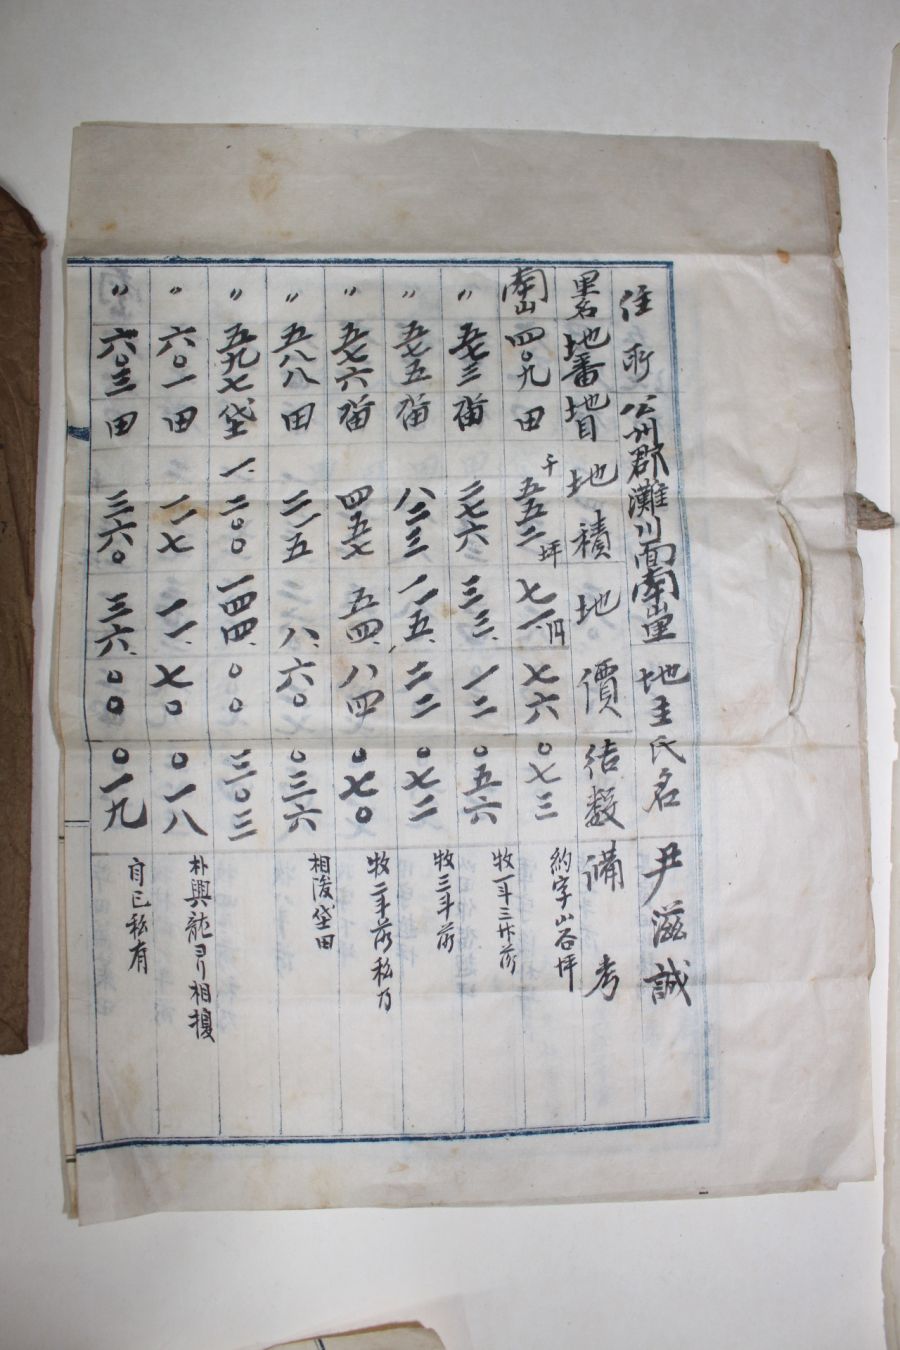 住所 公州郡灘川面南山里 地主氏名 尹滋誠
里名 地番 地目 地積 地價 結数 備考
南山 四〇九 田 千五五二坪 七一円七六 〇七三 約字山谷坪
〃 五七三 畓 二七六 三三、一二 〇五六 牧一斗三升落
〃 五七五 畓 八二三 一一五、二二 〇七二 牧三斗落
〃 五七六 畓 四五七 五四、八四 〇七〇 牧二斗落私乃
〃 五八八 田 二一五 八、六〇 〇三六 相浚垈田
〃 五九七 垈 一、二〇〇 一四四、〇〇 三〇三
〃 六〇一 田 一一七 一一、七〇 〇一八 朴興龍ヨリ相換
〃 六〇三 田 三六〇 三六、〇〇 〇一九 自己私有